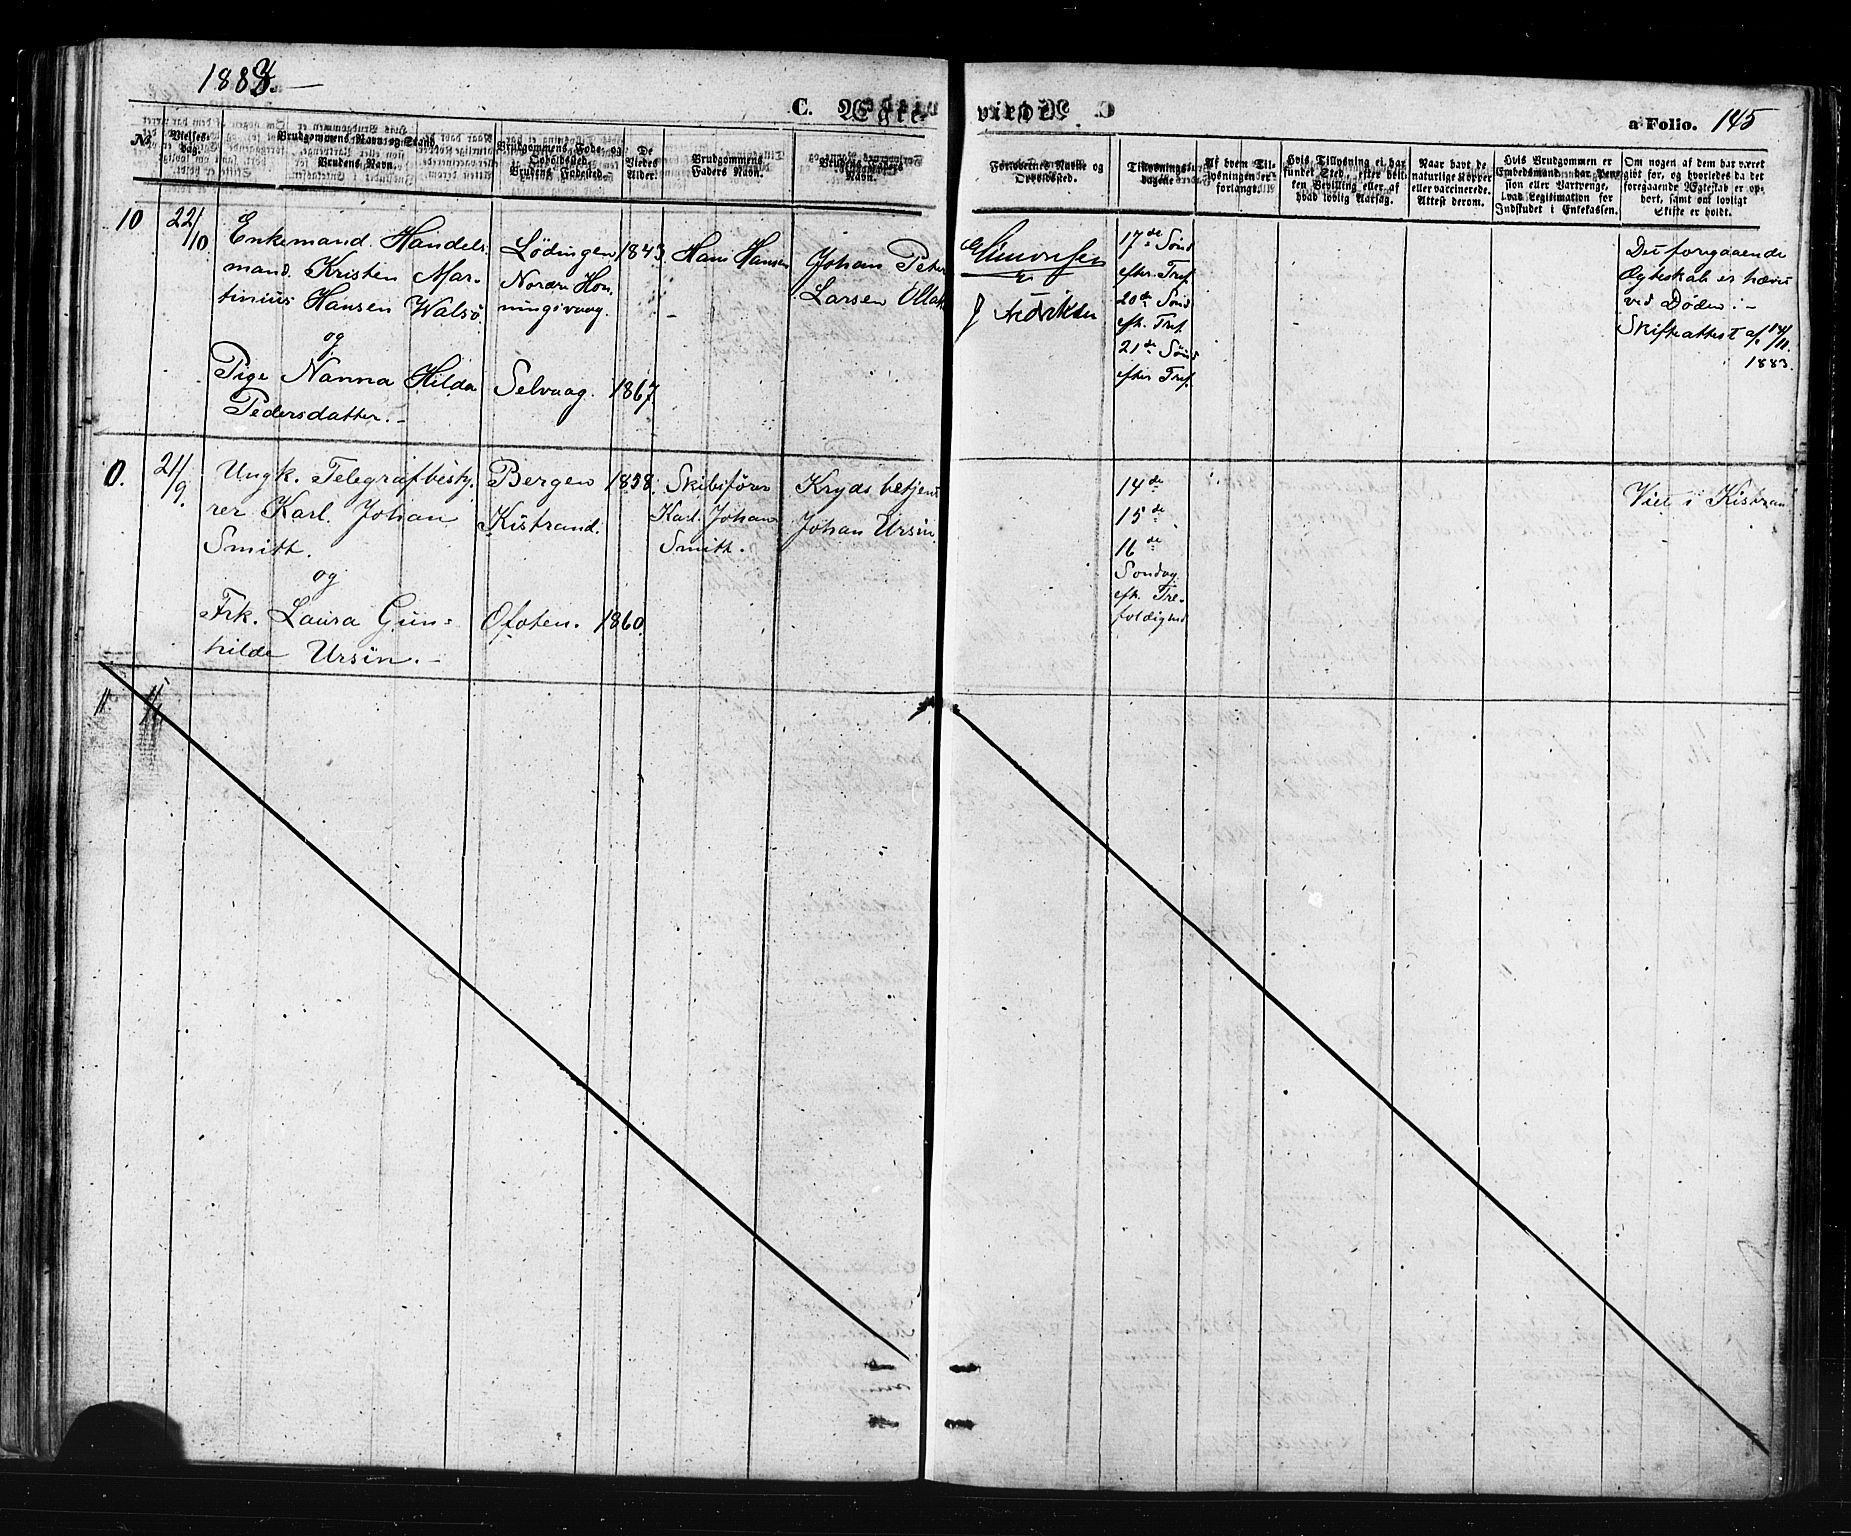 1888.
C. Ægte
vixde.
a Folio. 145
No.
Vielses-
dag.
Brudgommens Navn og Stand
Brudens Navn.
Brudgommens Føde- og
Opholdssted.
Brudens Fødested.
De
Viedes
Alder.
Brudgommens
Faders Navn.
Navn.
Forlovernes Navne og
Opholdssted.
Tillysnings-
dagene
Af hvem Til-
lysningen er
forlangt.
Hvis Tillysning ei har
fundet Sted, efter hvil-
ken Bevilling eller af
hvad lovlig Aarsag.
Naar havt de
naturlige Kopper
eller vaccinerede.
Attest derom.
Hvis Brudgommen er
Embedsmand, har Pen-
sion eller Vartpenge,
hvad Legitimation for
Indskudet i Enkekassen.
Om nogen af dem har været
gift før, og hvorledes da det
foregaaende Ægteskab er op-
hørt, samt om lovligt
Skifte er holdt.
10
22/10
Enkemand. Handels
mand. Kristen Mar-
tinius Hansen Walsø.
og
Pige Nanna Hilda
Pedersdatter.-
Lødingen
Nordre Hon-
ningsvaag.
Selvaag.
1843.
1867
Hans Hansen
Johan Peter
Larsen
Simonsen
J Fredriksen
17de Sønd
efter Tref.
20de Sønd
eft. Tref.
21de Sønd
efter Tref.
Det foregaaende
Ægteskab er hævet
ved Døden.-
Skifteattest af 14/11.
1883.
0.
21/9.
Ungk. Telegrafbesty-
rer Karl Johan
Smith.
og
Frk. Laura Gun-
hilde Ursin.-
Bergen
Kistrand.
Ofoten.
1858.
1860.
Skibsfører
Karl Johan
Smith.
Krydsbetjent
Johan Ursin.
14de
15de
16de
Søndag
eft. Tre-
foldighed
Viet i Kistrand
11.